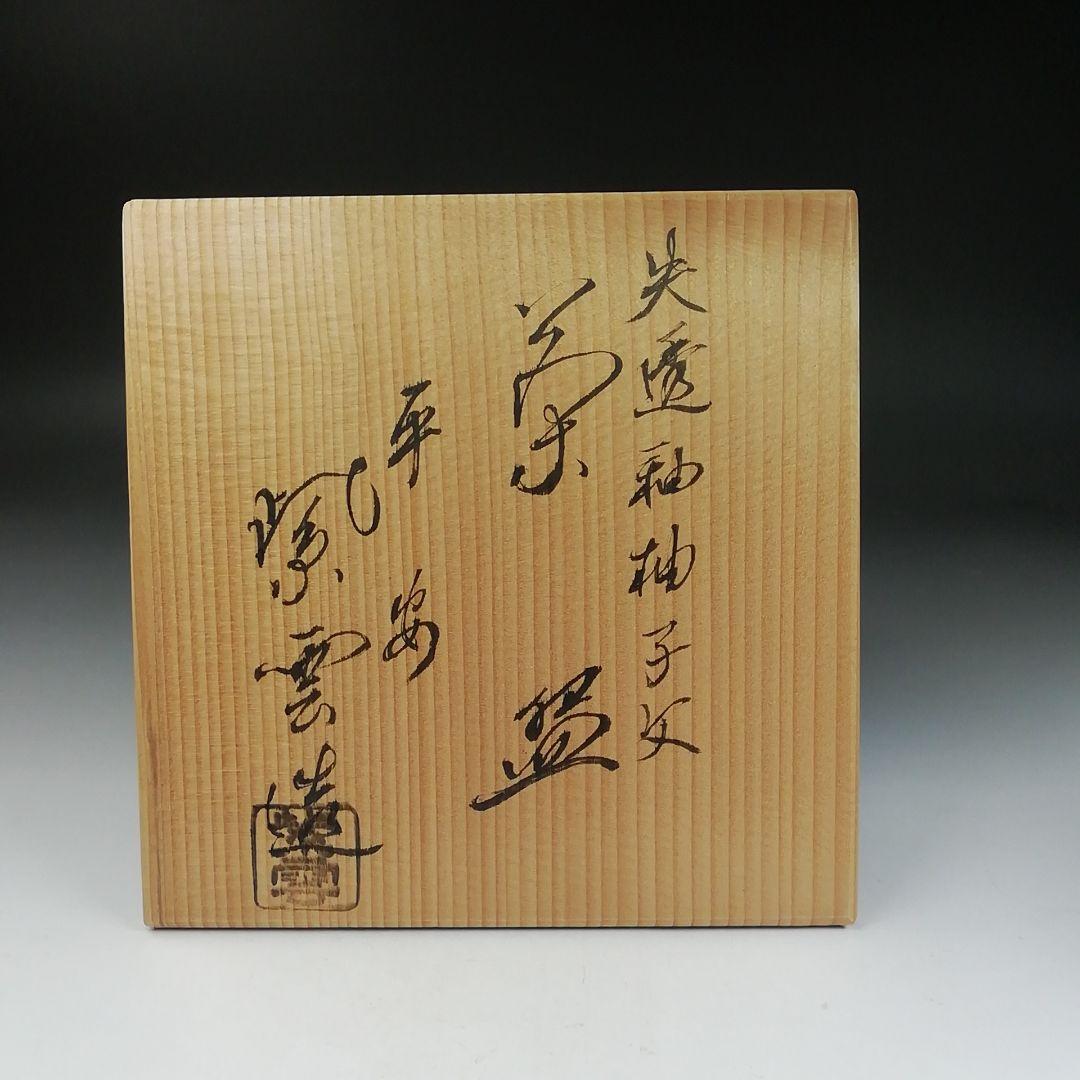 失透釉柚子文
菓盌
平安
紫雲造
紫雲